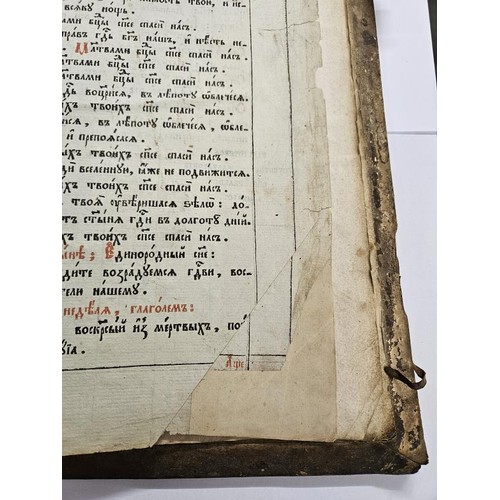 всѧку нощь.
тами бцы спсе спаси насъ.
гдь бгъ нашъ, и нѣсть не
Матвами бцы спсе спаси насъ.
твами бцы спсе спаси насъ.
атвами бцы спсе спаси насъ.
воцрисѧ, въ лѣпоту ѡблечесѧ
хъ твоихъ спсе спаси насъ.
исѧ, въ лѣпоту ѡблечесѧ, ѡбле
и препоѧсасѧ.
хъ твоихъ спсе спаси насъ.
вселеннꙋю, ꙗже не подвижитсѧ.
твоихъ спсе спаси насъ.
твоѧ ѹвѣришасѧ ѕѣлѡ: до
стынѧ гдги въ долготꙋ дній.
хъ твоихъ спсе спаси насъ.
нѣ; Единородный сне:
дите возрадꙋемсѧ гдви, вос
тели нашему.
недѣлѧ, глаголемъ:
воскрсый из мертвыхъ, по